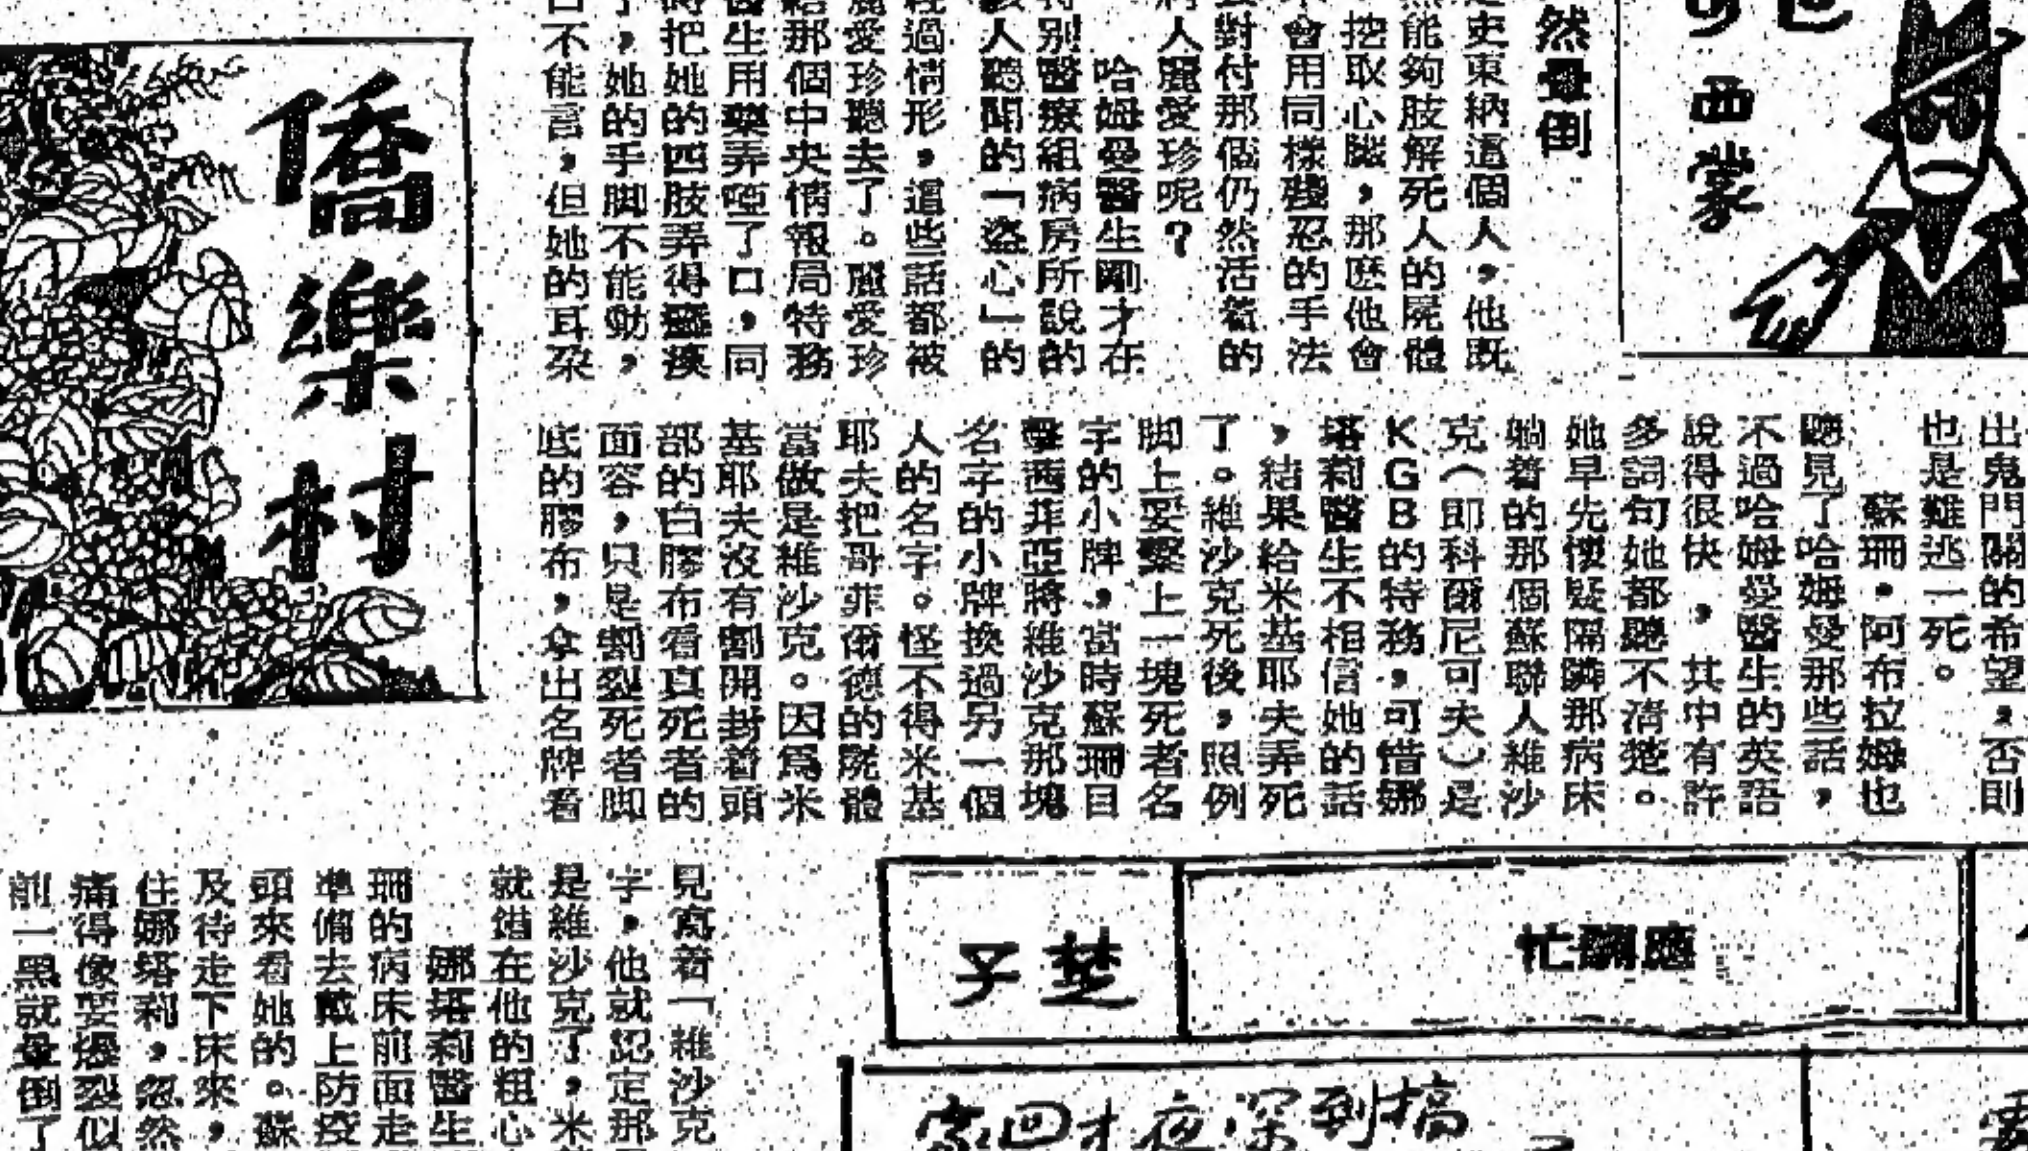 西蒙
然暈倒
是吏東納這個人,他既
然能夠肢解死人的屍體
挖取心臟,那麽他會
不會用同樣殘忍的手法
去對付那個仍然活着的
病人麗愛珍呢?
哈姆曼醫生剛才在
特別醫療組病房所說的
人聽聞的「盜心」的
經過情形,這些話都被
麗愛珍聽去了。麗愛珍
給那個中央情報局特務
醫生用藥弄啞了口,同
時把她的四肢弄得癱瘓
了,她的手脚不能動,
口不能言,但她的耳朶
僑樂村
出鬼門關的希望,否則
也是難逃一死。
蘇珊·阿布拉姆也
聽見了哈姆曼那些話,
不過哈姆曼醫生的英語
說得很快,其中有許
多詞句她都聽不清楚。
她早先懷疑隔隣那病床
躺着的那個蘇聯人維沙
克(即科爾尼可夫)是
KGB的特務,可惜娜
塔莉醫生不相信她的話
,結果給米基耶夫弄死
了。維沙克死後,照例
脚上要繫上一塊死者名
字的小牌,當時蘇珊目
擊西菲亞將維沙克那塊
名字的小牌換過另一個
人的名字。怪不得米基
耶夫把哥菲爾德的屍體
當做是維沙克。因爲米
基耶夫沒有割開封着頭
部的白膠布看真死者的
面容,只是割裂死者脚
底的膠布,拿出名牌看
見寫着「維沙克
字,他就認定那
是維沙克了,米
就錯在他的粗心
娜塔莉醫生
珊的病床前面走
準備去戴上防疫
頭來看她的。蘇
及待走下床來,
住娜塔莉,忽然
痛得像要爆裂似
前一黑就暈倒了
應酬忙
楚子
搞到深夜才回家